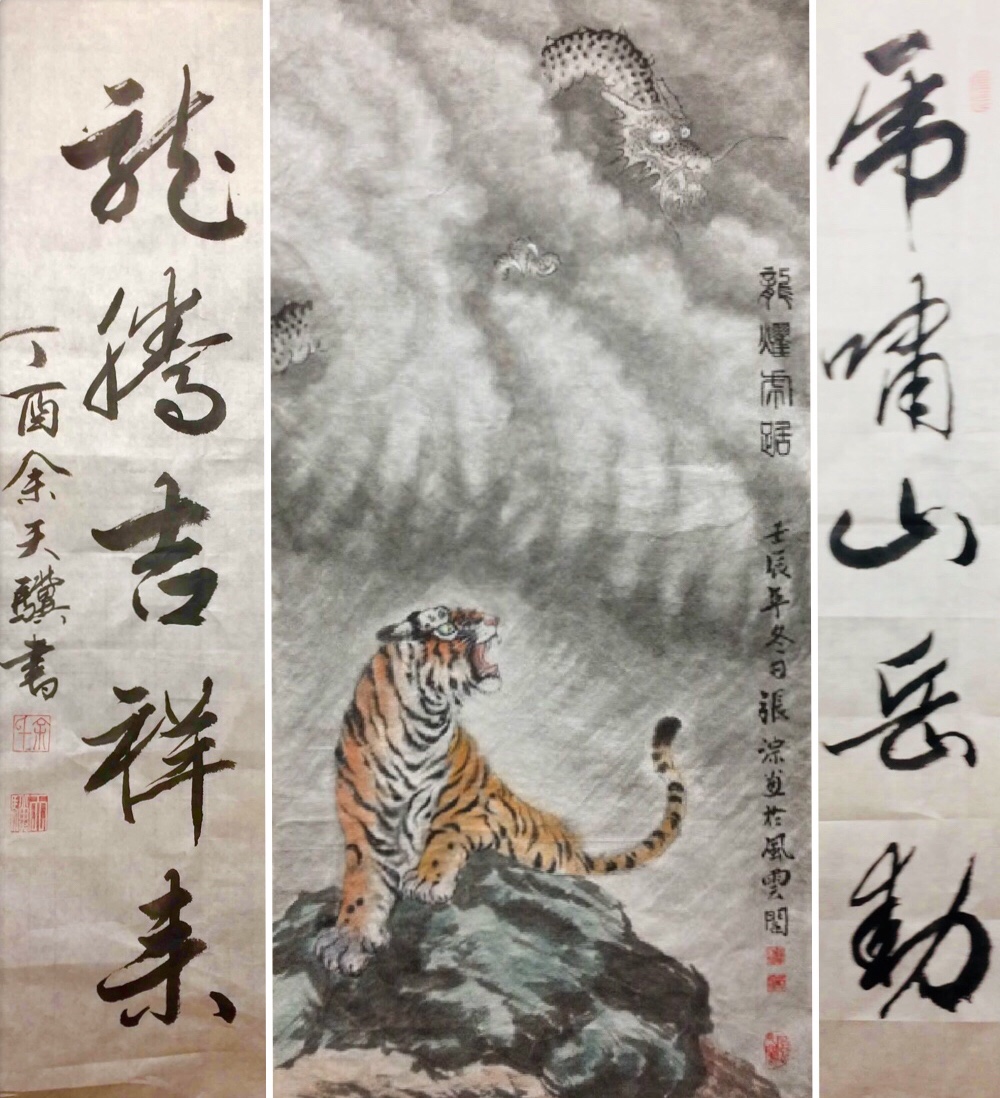 虎啸山岳动
龍燿虎踞
壬辰年冬日張淙画於風雲閣
龍腾吉祥来
丁酉余天驥書